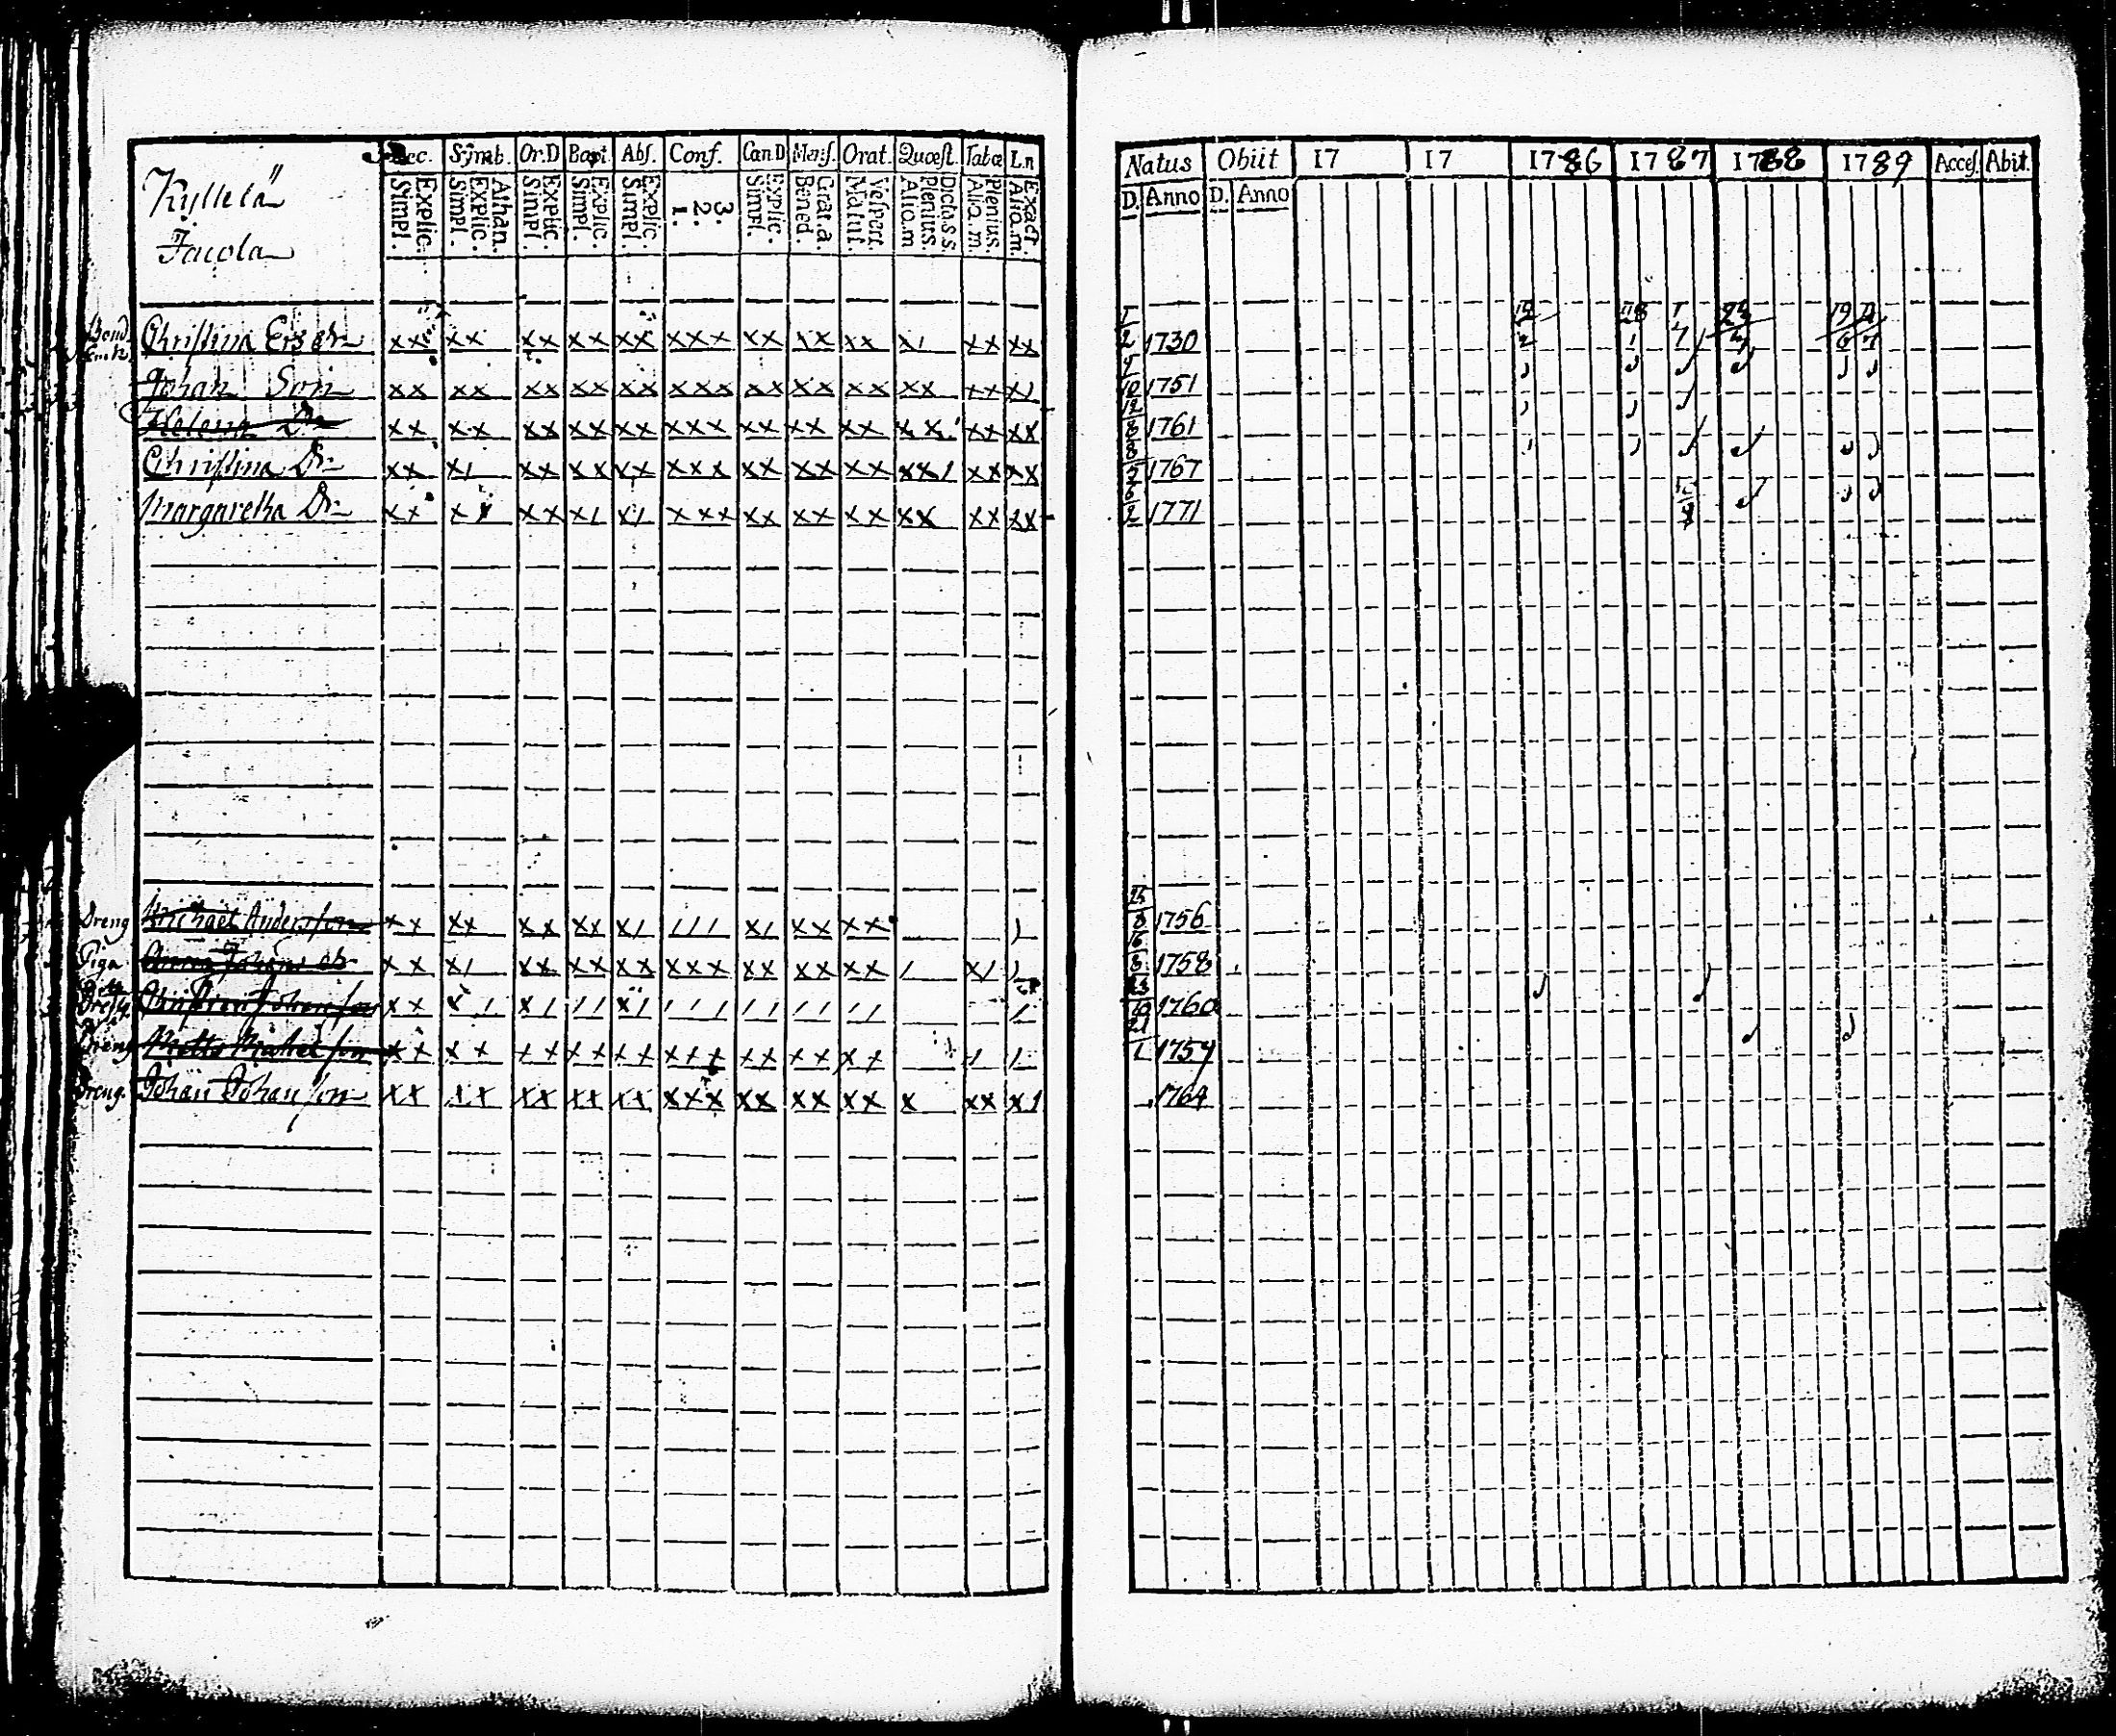 Kylletä
Jacola
Dec. Symb. Or.D Bapt. Abs. Conf. Can D Mens. Orat. Quæst. Tabæ L.n
Explic. Simpl. Athan. Explic. Simpl. Explic. Simpl. Explic. Simpl. Explic. Simpl. 3. 2. 1. Explic. Simpl. Grat. a. Bened. Vespert. Matut. Dicta s.s. Plenius. Aliq. m. Plenius. Aliq. m. Exact. Aliq. m.
Christina Ersdr xx xx xx xx xx xxx xx xx xx x/ xx xx
Johan Son xx xx xx xx xx xxx xx xx xx xx xx x/
Helena Dr xx xx xx xx xx xxx xx xx xx xx xx xx
Christina Dr xx x/ xx xx xx xxx xx xx xx xx/ xx xx
Margaretha Dr xx xx xx x/ x/ xxx xx xx xx xx xx xx
Dreng Michael Andersson xx xx xx xx x/ /// x/ xx xx /
Piga Anna Johans dr xx x/ xx xx xx xxx xx xx xx / x/ /
Christian Johansson xx x/ x/ // x/ /// // // // /
Dreng Matts Michelsson xx xx xx xx xx xxx xx xx xx / /
Dreng. Johan Johansson xx xx xx xx xx xxx xx xx xx x xx x/
Natus Obiit 17 17 1786 1787 1788 1789 Acces. Abit.
D. Anno D. Anno
1730
1751
1761
1767
1771
1756
1758
1760
1754
1764